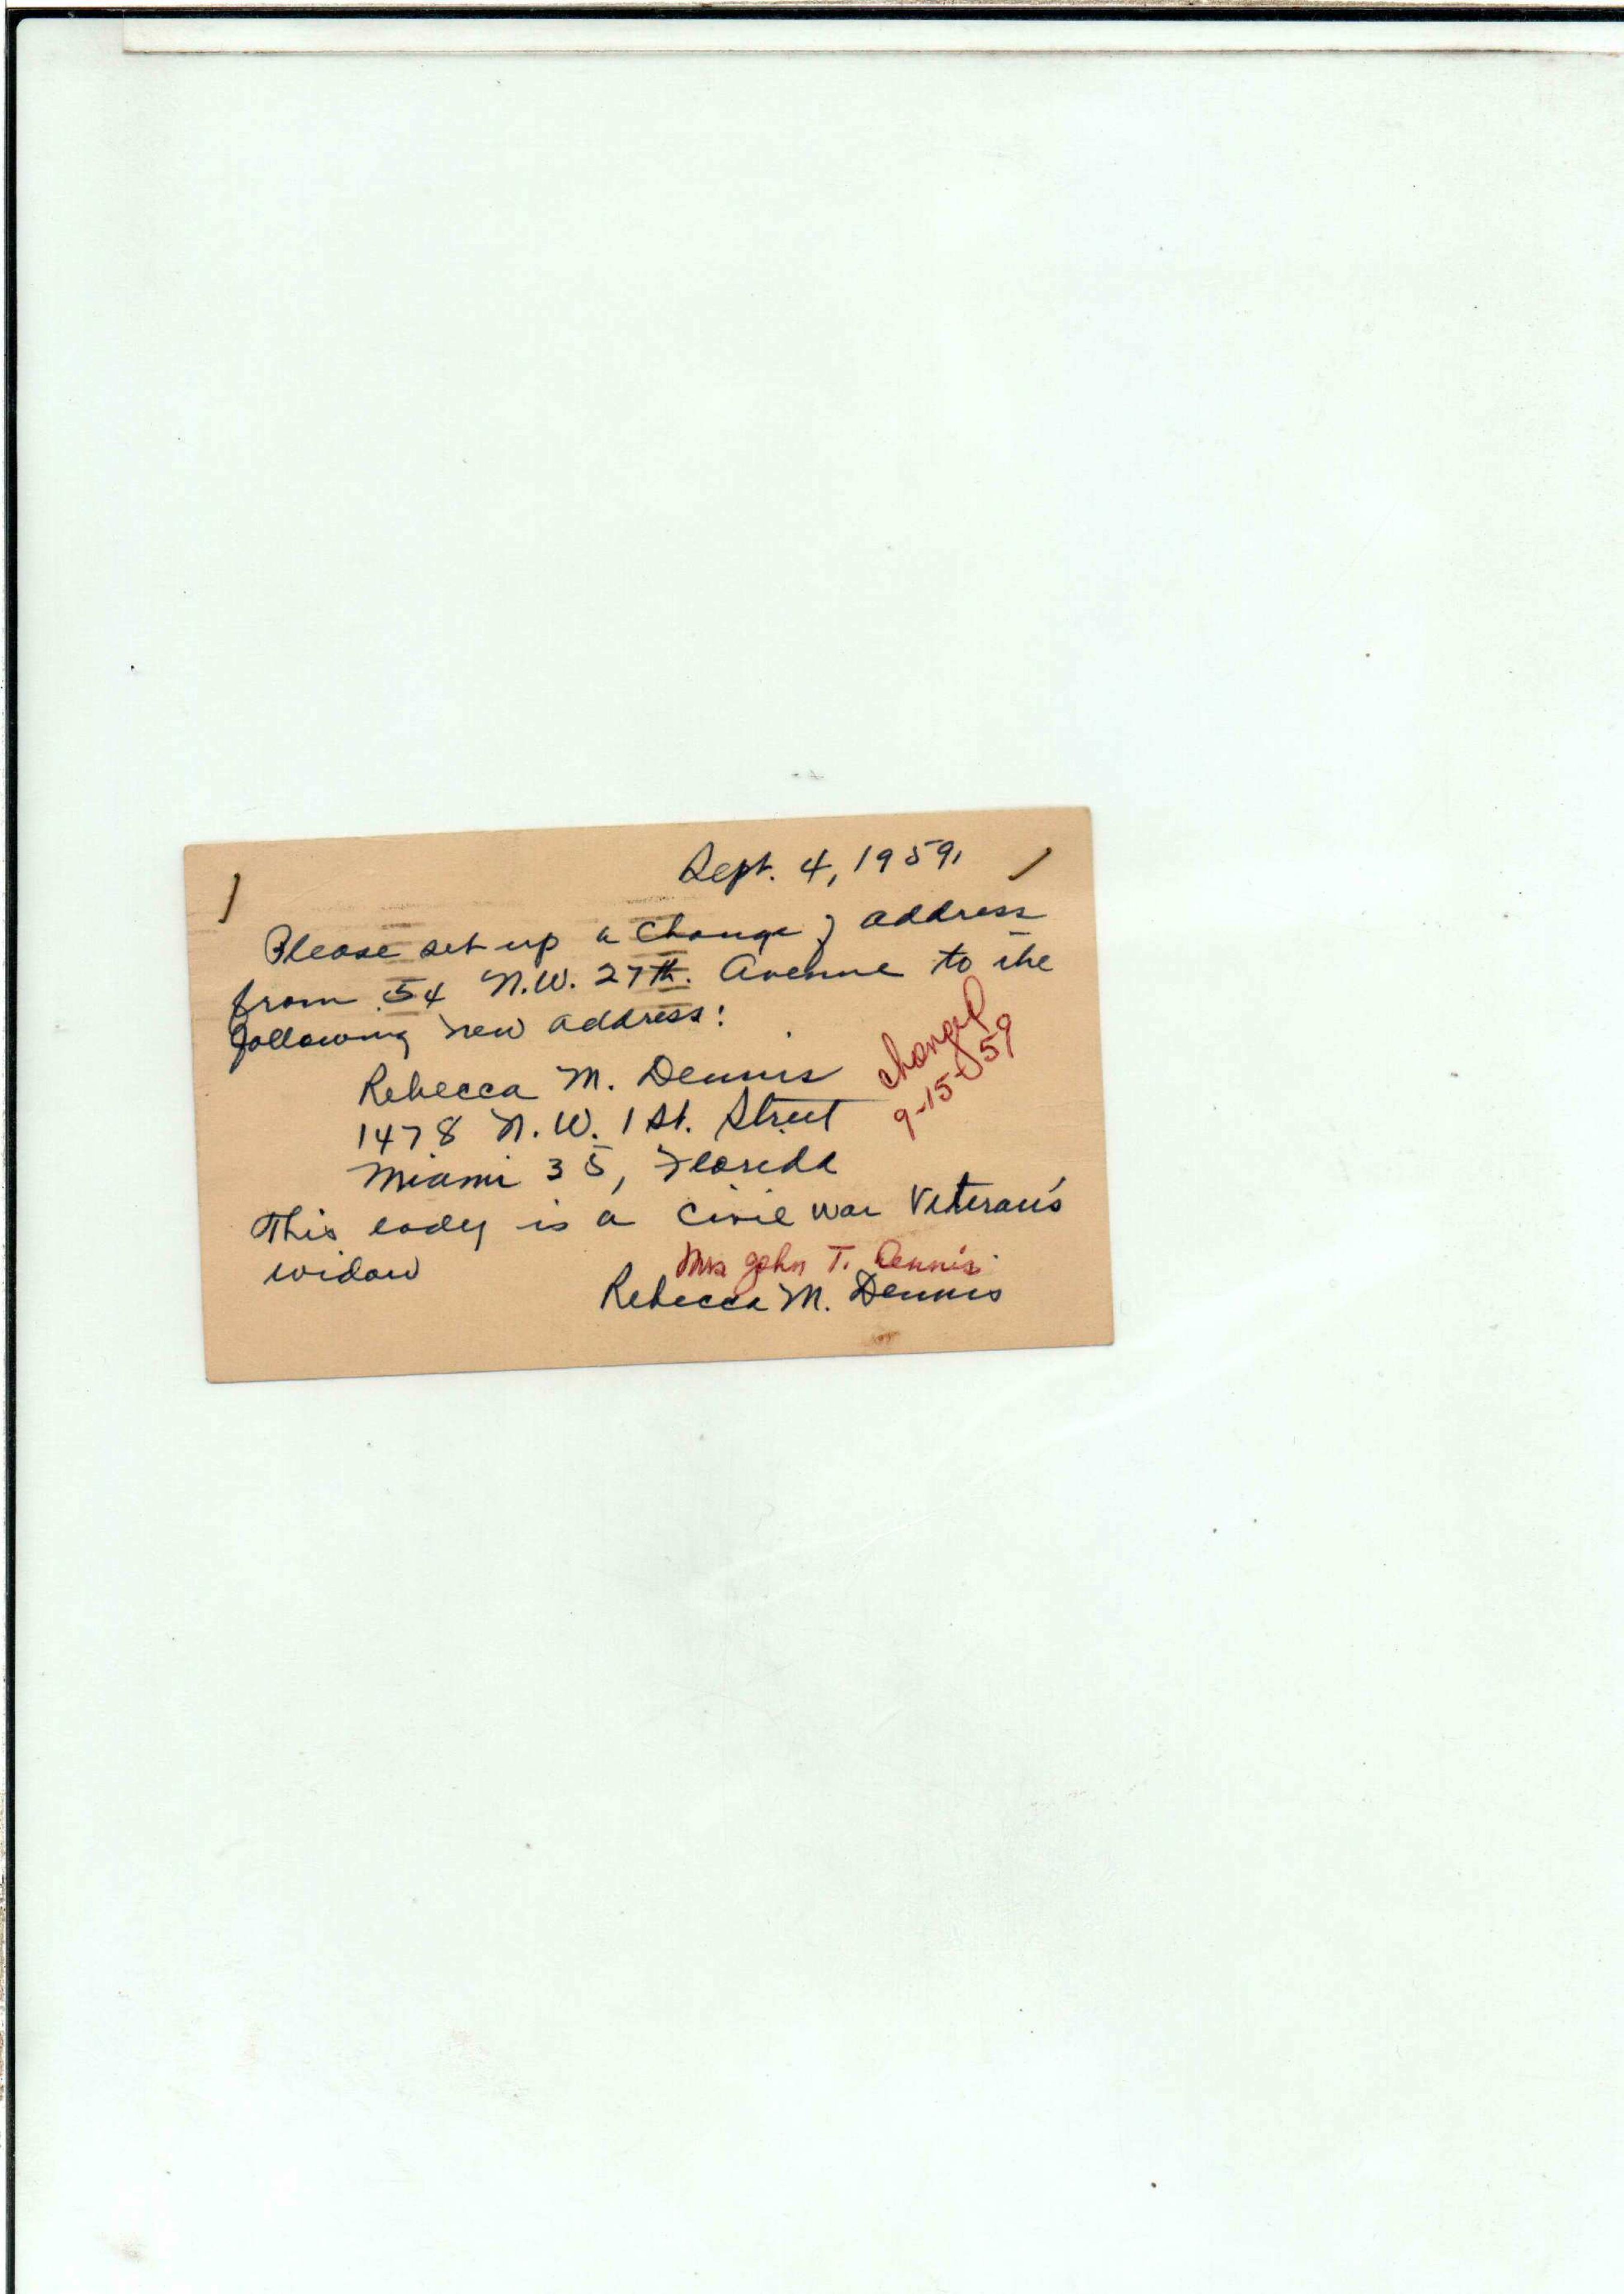 Sept. 4, 1959.
Please set up a change of address
from 54 N.W. 27th. Avenue to the
following new address:
Rebecca M. Dennis
1478 N.W. 1 St. Street
Miami 35, Florida
changed
9-15-59
This lady is a Civil War Veteran's
widow
Mrs John T. Dennis.
Rebecca M. Dennis